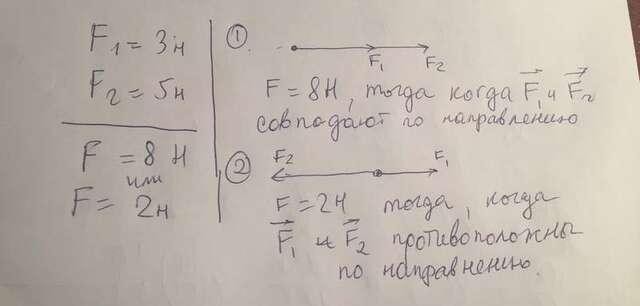 F₁ = 3н
F₂ = 5н
F = 8 Н
или
F = 2н
①
F₁ F₂
F = 8Н, тогда когда F₁ и F₂
совподают по направлению
②
F₂ F₁
F = 2Н тогда, когда
F₁ и F₂ противоположны
по направлению.